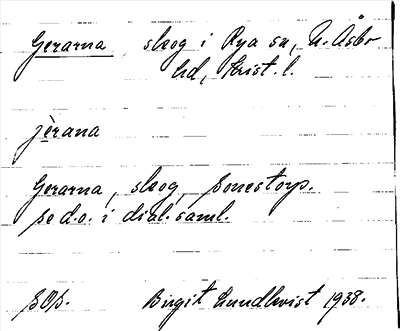 Gerarna skog i Rya sn, N. Åsbo
hd, Krist. l.
jèrana
Gerarna, skog, Ponestorp.
se d.o. i dial. saml.
Birgit Lundkvist 1938.